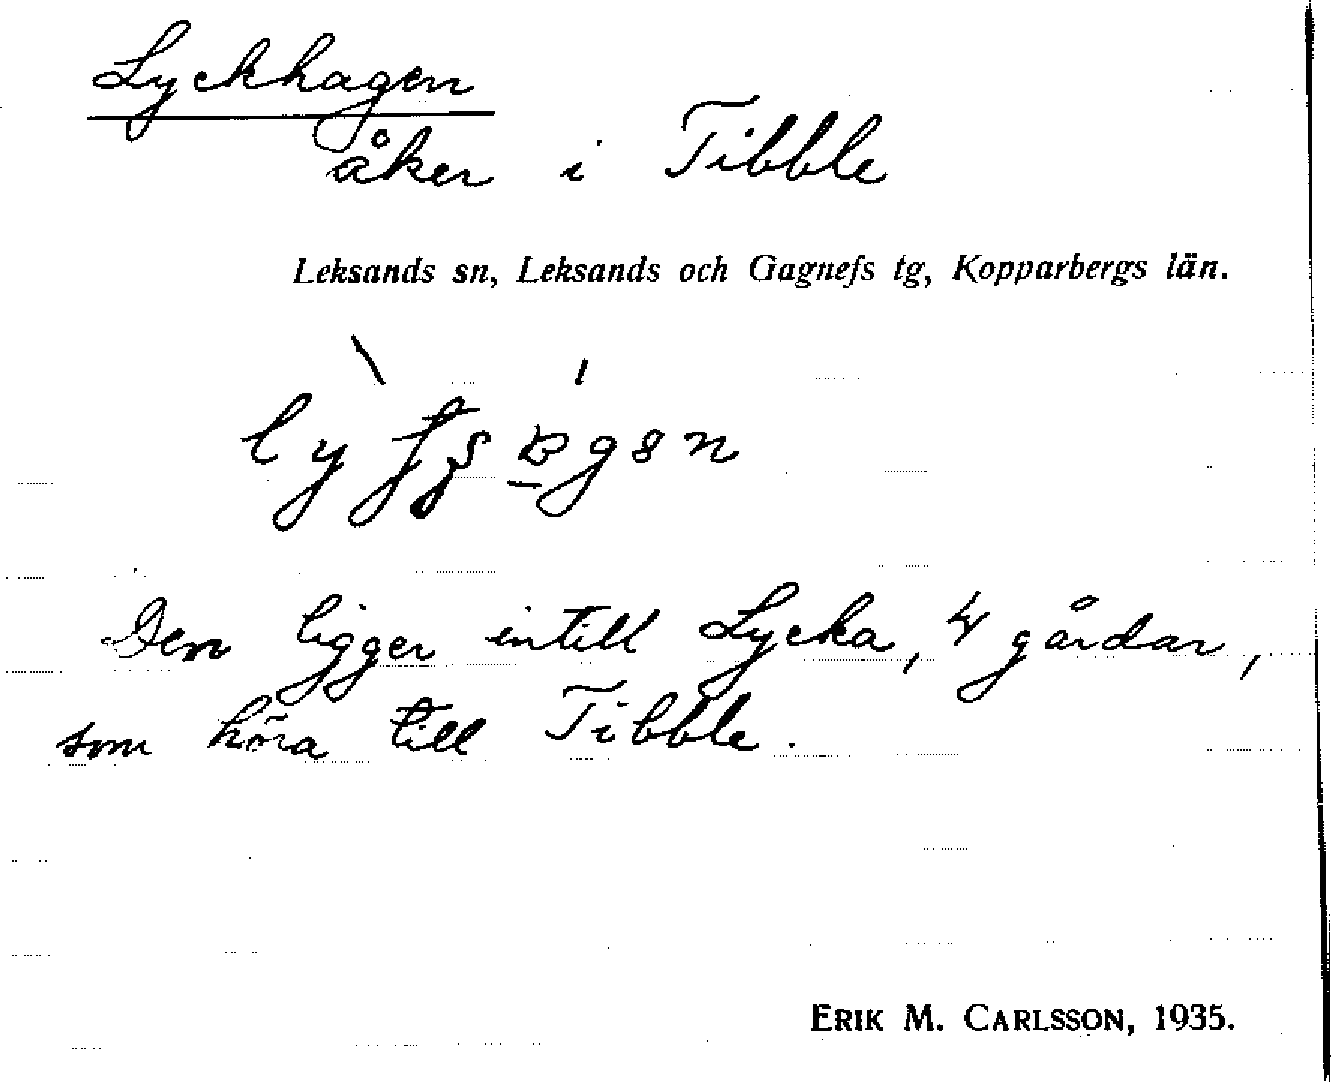 Lyckhagen
åker i Tibble
Leksands sn, Leksands och Gagnefs tg, Kopparbergs län.
Den ligger intill Lycka, 4 gårdar,
som höra till Tibble.
ERIK M. CARLSSON, 1935.